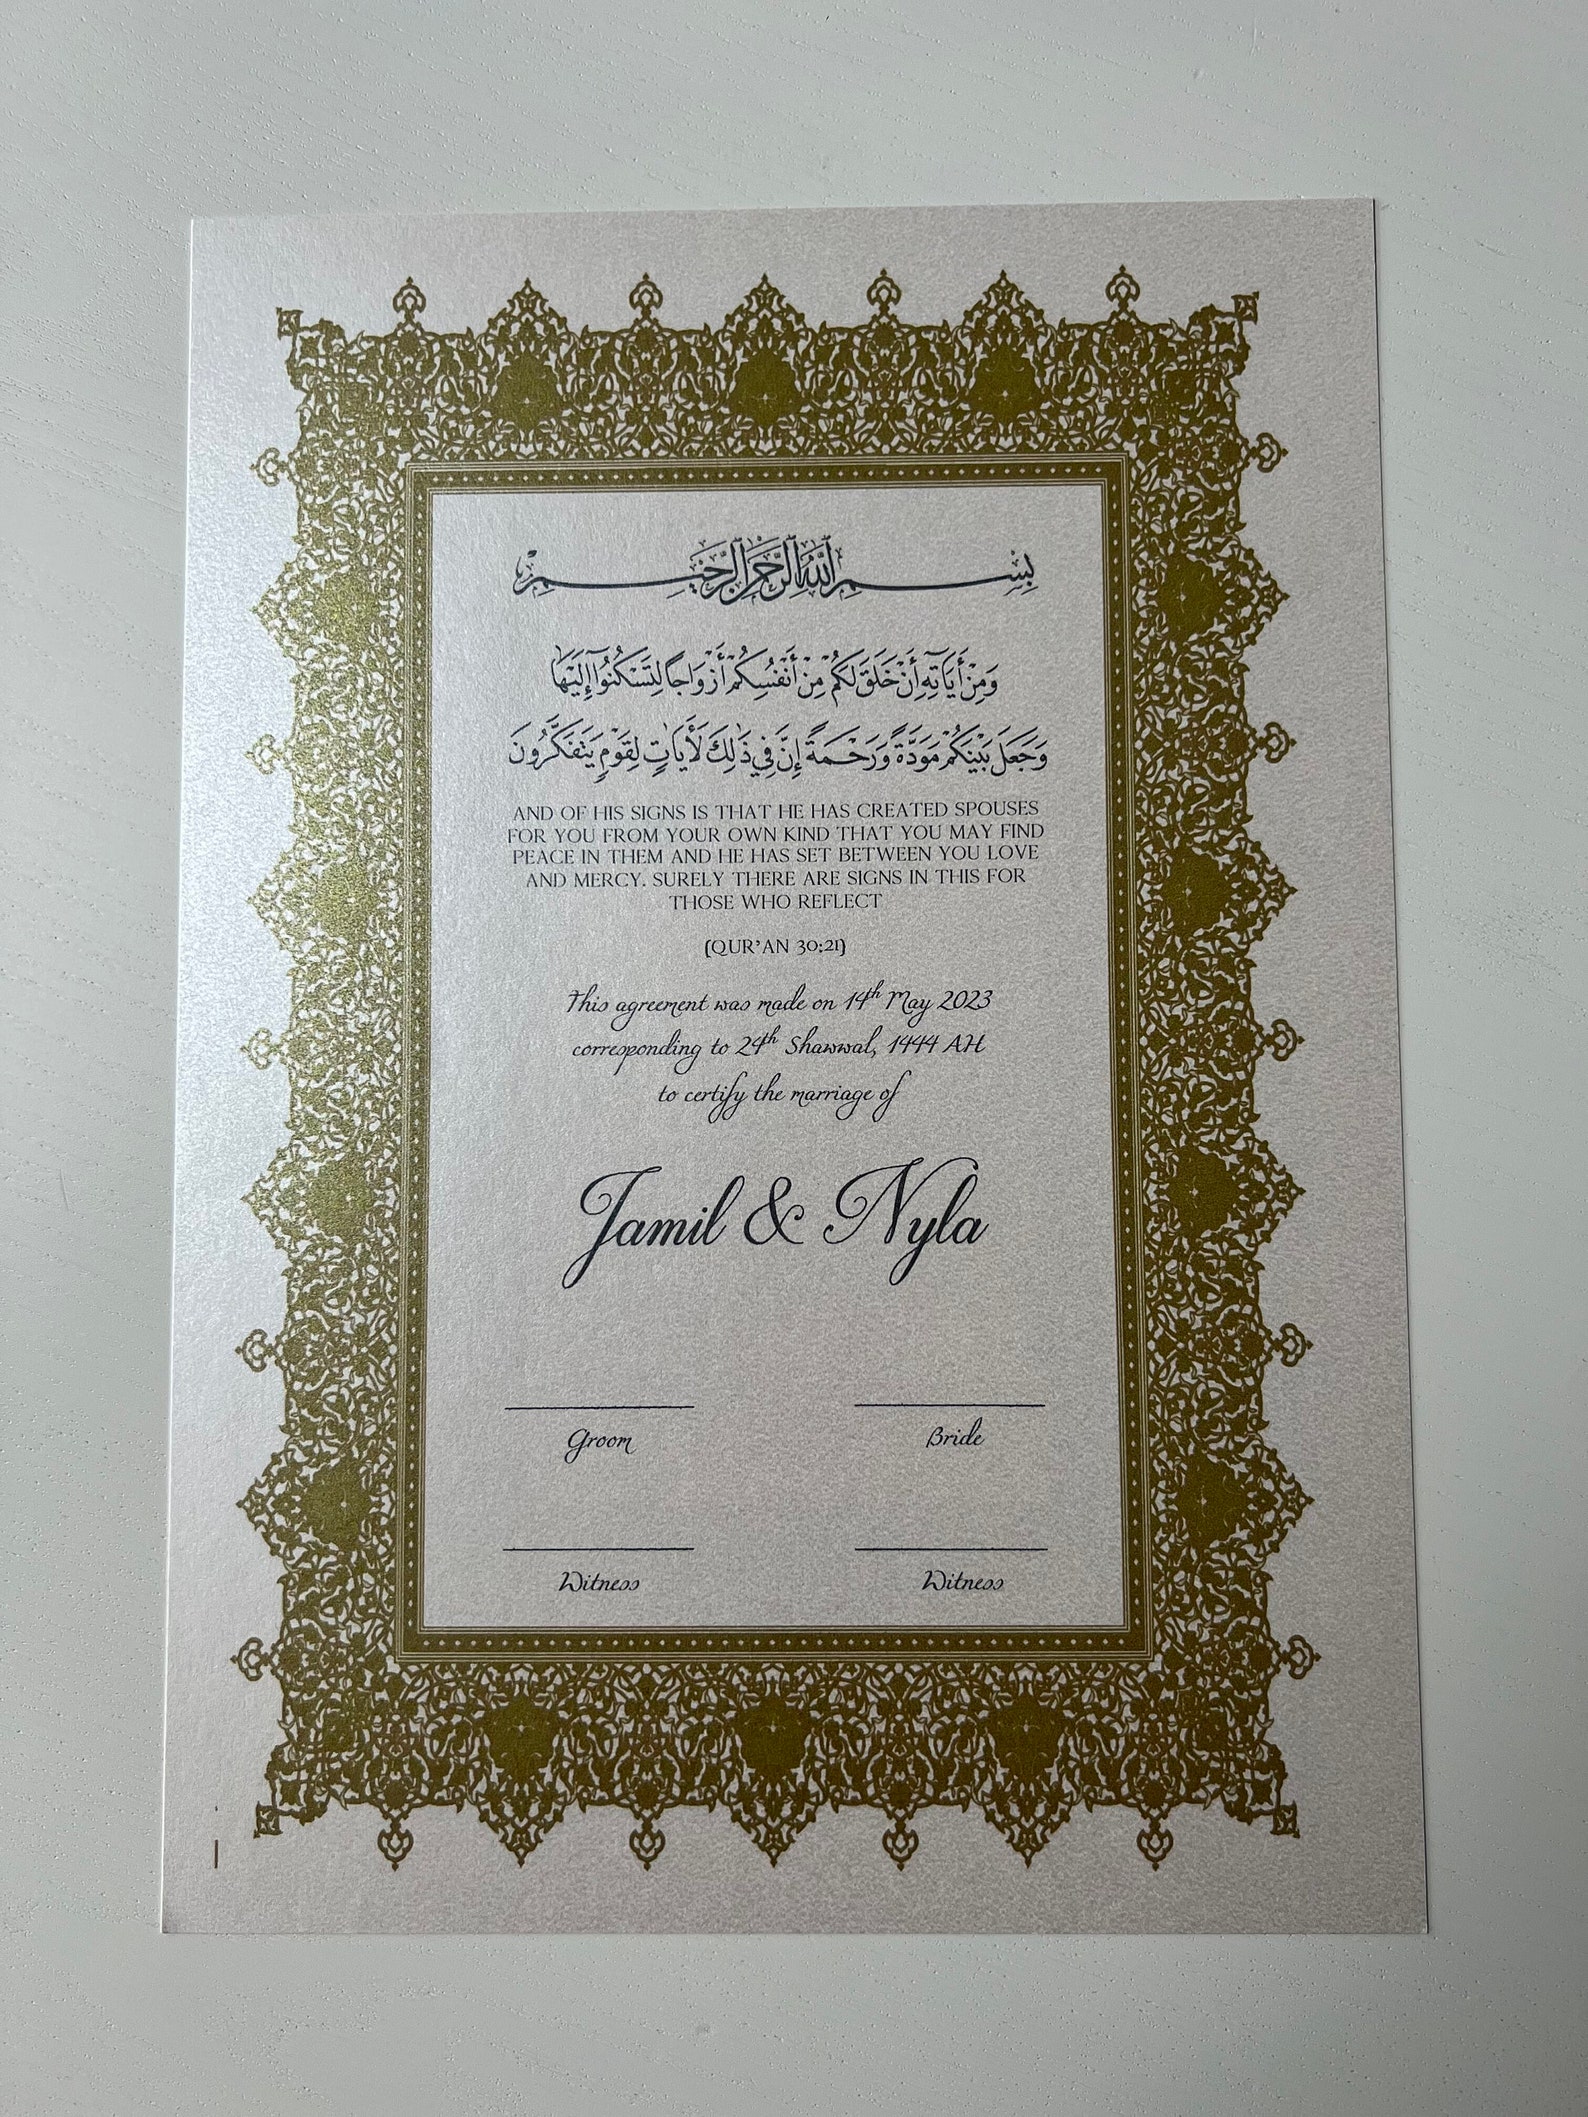 بِسْمِ اللَّهِ الرَّحْمَٰنِ الرَّحِيمِ
وَمِنْ أَيَاتِهِ أَنْ خَلَقَ لَكُمْ مِنْ أَنْفُسِكُمْ أَزْوَاجًا لِتَسْكُنُوا إِلَيْهَا
وَجَعَلَ بَيْنَكُمْ مَوَدَّةً وَرَحْمَةً إِنَّ فِي ذَٰلِكَ لَأَيَاتٍ لِقَوْمٍ يَتَفَكَّرُونَ
AND OF HIS SIGNS IS THAT HE HAS CREATED SPOUSES
FOR YOU FROM YOUR OWN KIND THAT YOU MAY FIND
PEACE IN THEM AND HE HAS SET BETWEEN YOU LOVE
AND MERCY. SURELY THERE ARE SIGNS IN THIS FOR
THOSE WHO REFLECT
(QUR'AN 30:21)
This agreement was made on 14th May 2023
corresponding to 24th Shawwal, 1444 AH
to certify the marriage of
Jamil & Nyla
Groom Bride
Witness Witness